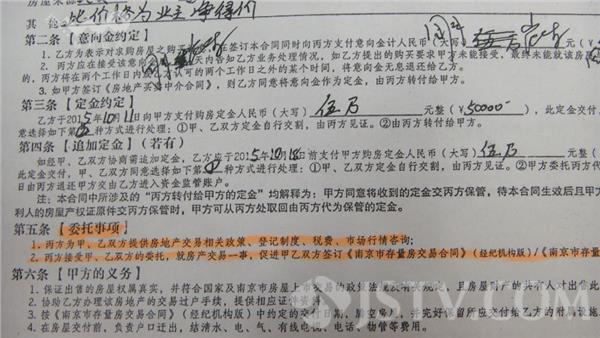 其他 此价格为业主净得价
第二条【意向金约定】
1、乙方为表示对求购房屋之购 在签订本合同同时向丙方支付意向金计人民币(大写) 元(
2、丙方应在接受该意向金 天内告知乙方业务处理情况,如乙方提出的购买要求甲方未能接受,最终未能就该房
的,丙方将在两个工作日内 认可的两个工作日之外的某个时间,将意向金无息退还给乙方。
3、如甲方签订《房地产买 中介合同》,则乙方同意将意向金作为定金,由丙方转付给甲方。
第三条【定金约定】
乙方于2015年10月11日向丙方支付甲方购房定金人民币(大写)伍万 元整(¥50000 ),此定金交付,
意选择如下第 种方式进行处理:①甲、乙双方定金自行交割,由丙方见证。②由丙方转付给甲方。
第四条【追加定金】(若有)
如经甲、乙双方协商需追加定金,乙方应于2015年10月18日前支付甲方购房定金人民币(大写)伍万 元整(
此定金交付,甲、乙双方同意选择如下第 种方式进行处理:①甲、乙双方定金自行交割,由丙方见证。②甲方委托丙方代
日由丙方退还甲方交由乙方进入资金监管账户。
注:本合同中所涉及的“丙方转付给甲方的定金”均解释为:甲方同意将收到的定金交丙方保管,待本合同生效后且甲方
利人的房屋产权证原件交丙方保管时,甲方可从丙方处取回由丙方代为保管的定金。
第五条【委托事项】
1、丙方为甲、乙双方提供房地产交易相关政策、登记制度、税费、市场行情咨询;
2、丙方接受甲、乙双方的委托,就房产交易一事,促进甲乙双方签订《南京市存量房交易合同》(经纪机构版)/《南京市存
第六条【甲方的义务】
1、保证出售的房屋权属真实,并符合国家及南京市房屋上市交易的政策法规及有关规定,且房屋财产的共有人对出售此
2、协助乙方办理该房地产的交易过户手续,提供相应证件资料
3、按《南京市存量房交易合同》(经纪机构版)中约定的交付日期,腾空 ,并完好保留所应交付给乙方的附属设施
4、在房屋交付前,负责户口迁出,结清水、电、气、有线电视、电话、物管等费用。
JSTV.COM